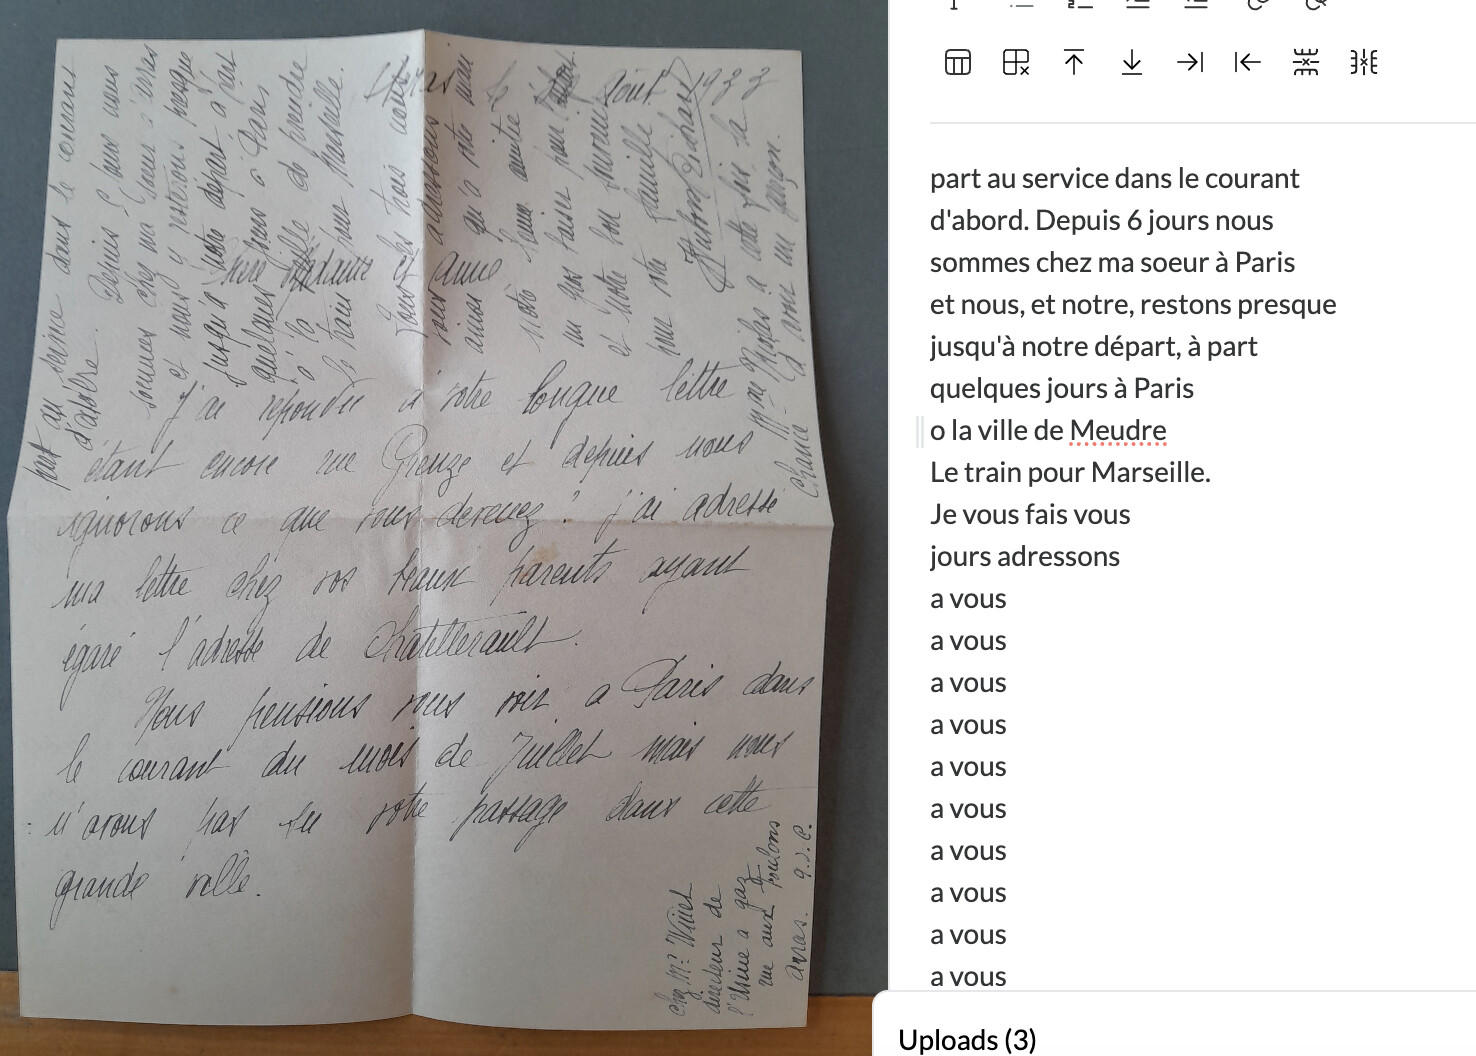 Arras le Août 1933
Chère Madame
J'ai répondu à votre longue lettre
étant encore rue Greuze et depuis nous
ignorons ce que vous devenez? j'ai adressé
ma lettre chez vos beaux parents ayant
égaré l'adresse de Chatellerault.
Nous pensions vous voir a Paris dans
le courant du mois de Juillet mais nous
n'avons pas su votre passage dans cette
grande ville.
part au service dans le courant
d'abord. Depuis 6 jours nous
sommes chez ma soeur à Arras
et nous y resterons presque
jusqu'à notre départ à part
quelques jours à Paris
à la de prendre
le train pour Marseille.
Tous les trois nous
vous adressons
ainsi qu'à votre
notre amitié
un gros baiser pour Anne
et notre bon souvenir
pour votre famille
Mme Nicolas a cette fois la
chance d'avoir un garçon
Chez Mr Winet
directeur de
l'Usine a gaz
rue aux Foulons
Arras. P.d.C.
part au service dans le courant
d'abord. Depuis 6 jours nous
sommes chez ma soeur à Paris
et nous, et notre, restons presque
jusqu'à notre départ, à part
quelques jours à Paris
o la ville de Meudre
Le train pour Marseille.
Je vous fais vous
jours adressons
a vous
a vous
a vous
a vous
a vous
a vous
a vous
a vous
a vous
a vous
Uploads (3)